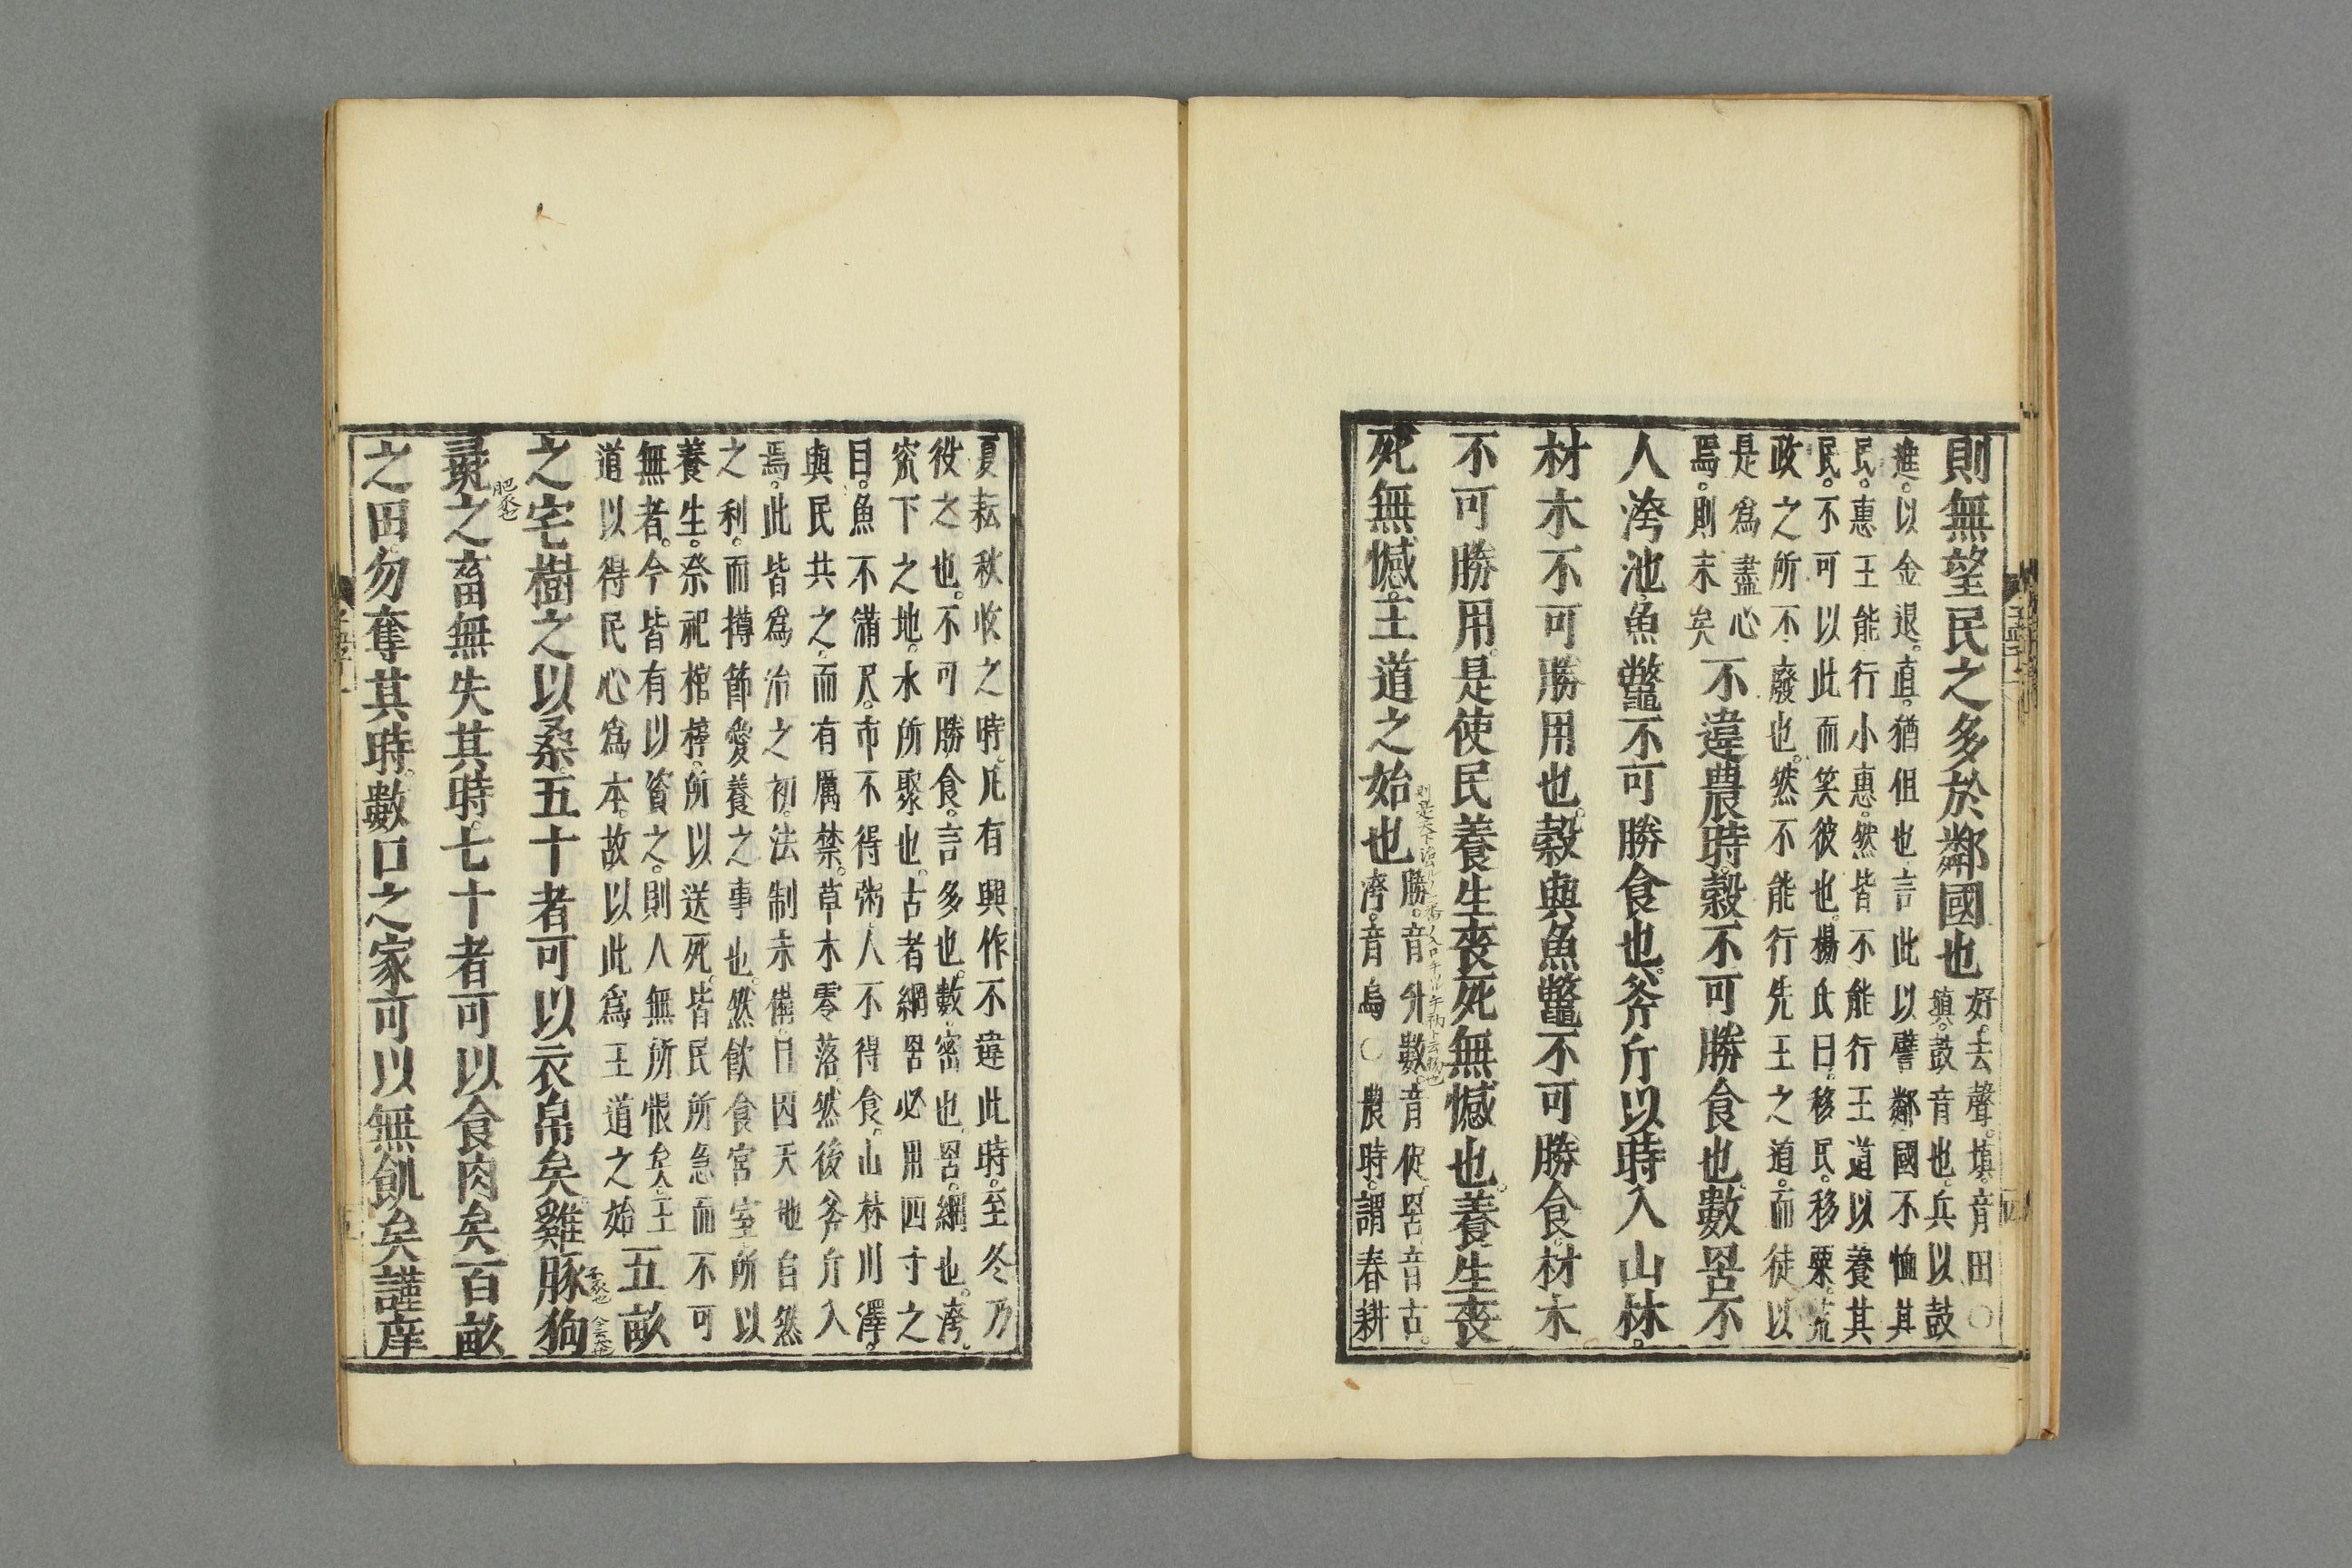 則無望民之多於鄰國也
好。去聲。填。音田○
填。鼓音也。兵以鼓
進。以金退。直。猶但也言此以譬鄰國不恤其
民。惠王能行小惠。然皆不能行王道以養其
民。不可以此而笑彼也。楊氏曰。移民。移粟。荒
政之所不廢也。然不能行先王之道。而徒以
是爲盡心
焉。則末矣
不違農時。穀不可勝食也。數罟不
入洿池。魚鼈不可勝食也。斧斤以時入山林。
材木不可勝用也。穀與魚鼈不可勝食。材木
不可勝用。是使民養生喪死無憾也。養生喪
死無憾。王道之始也
勝。音升數。音促。罟。音古。
洿。音烏○農時。謂春耕
夏耘秋收之時。凡有興作不違此時。至冬乃
役之也。不可勝食。言多也。數。密也。罟。網也。洿。
窊下之地。水所聚也。古者網罟必用四寸之
目。魚不滿尺。市不得粥。人不得食。山林川澤。
與民共之。而有厲禁。草木零落。然後斧斤入
焉。此皆爲治之初。法制未備。且因天地自然
之利。而撙節愛養之事也。然飲食宮室所以
養生。祭祀棺槨。所以送死。皆民所急而不可
無者。今皆有以資之。則人無所恨矣。王
道以得民心爲本。故以此爲王道之始
五畝
之宅。樹之以桑。五十者可以衣帛矣。雞豚狗
彘之畜。無失其時。七十者可以食肉矣。百畝
肥豕也
之田。勿奪其時。數口之家可以無飢矣。謹庠